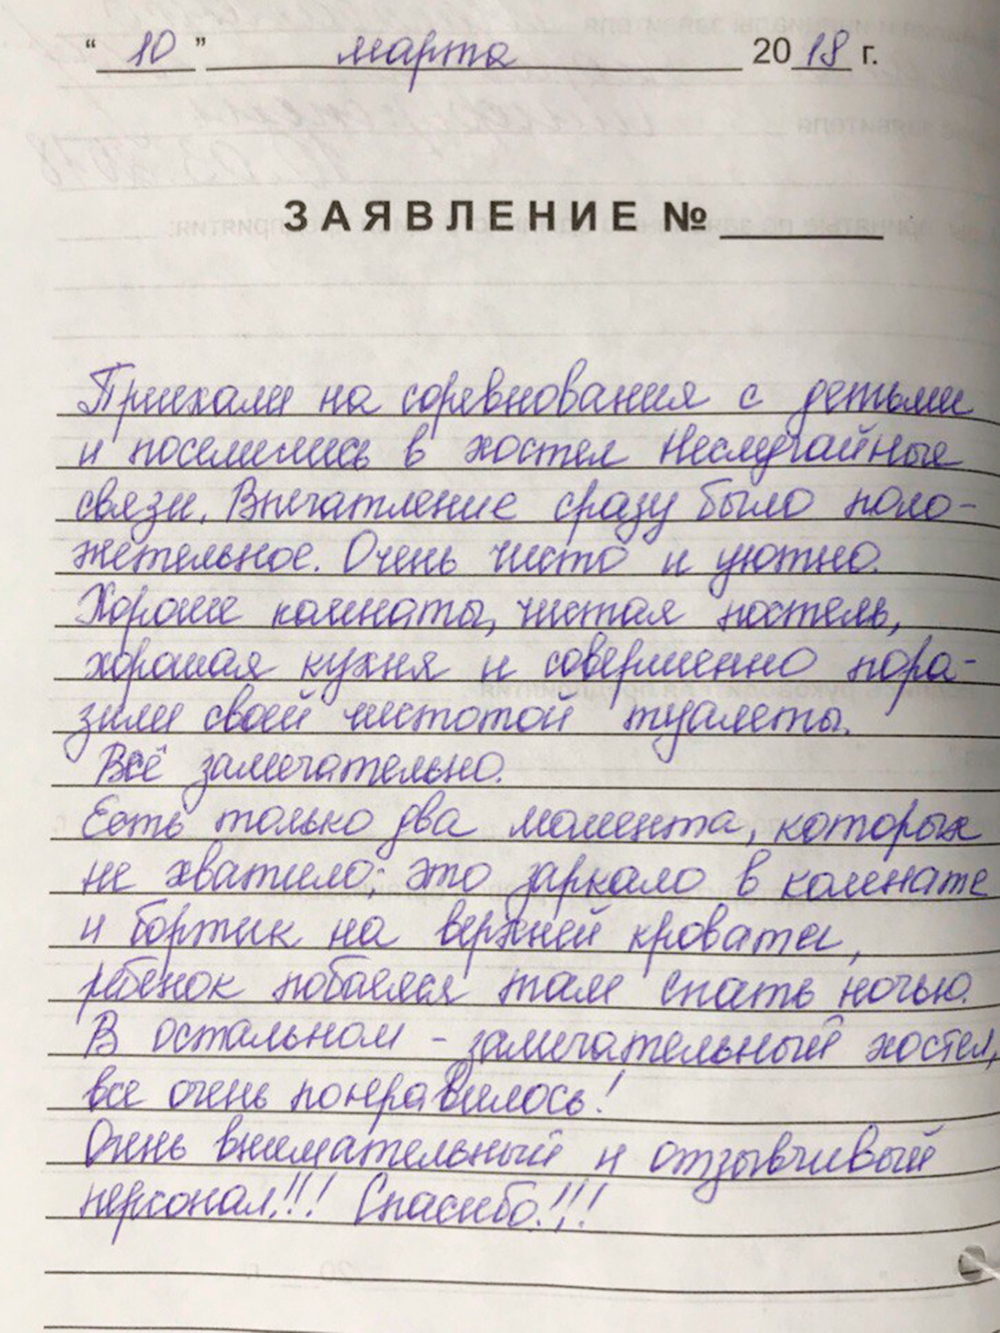 “ 10 ” марта 2018 г.
ЗАЯВЛЕНИЕ №
Приехали на соревнования с детьми
и поселились в хостел Неслучайные
связи. Впечатление сразу было поло-
жетельное. Очень чисто и уютно.
Хорошие комнаты, чистая постель,
хорошая кухня и совершенно пора-
зили своей чистотой туалеты.
Всё замечательно.
Есть только два момента, которых
не хватило: это заркало в комнате
и бортик на верхней кровати,
ребёнок побоялся там спать ночью.
В остальном - замечательный хостел,
все очень понравилось!
Очень внимательный и отзывчивый
персонал!!! Спасибо!!!